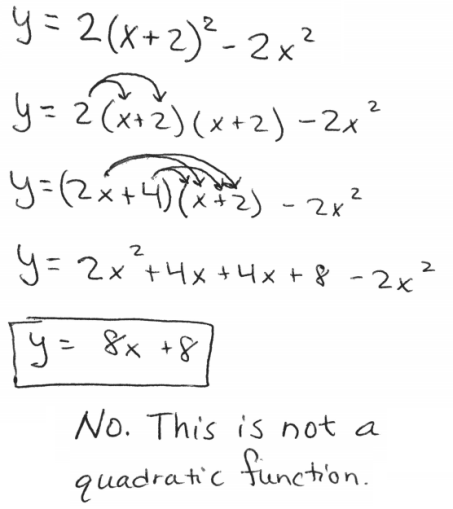 y = 2(x+2)² - 2x²
y = 2(x+2)(x+2) - 2x²
y = (2x+4)(x+2) - 2x²
y = 2x² + 4x + 4x + 8 - 2x²
y = 8x + 8
No. This is not a
quadratic function.